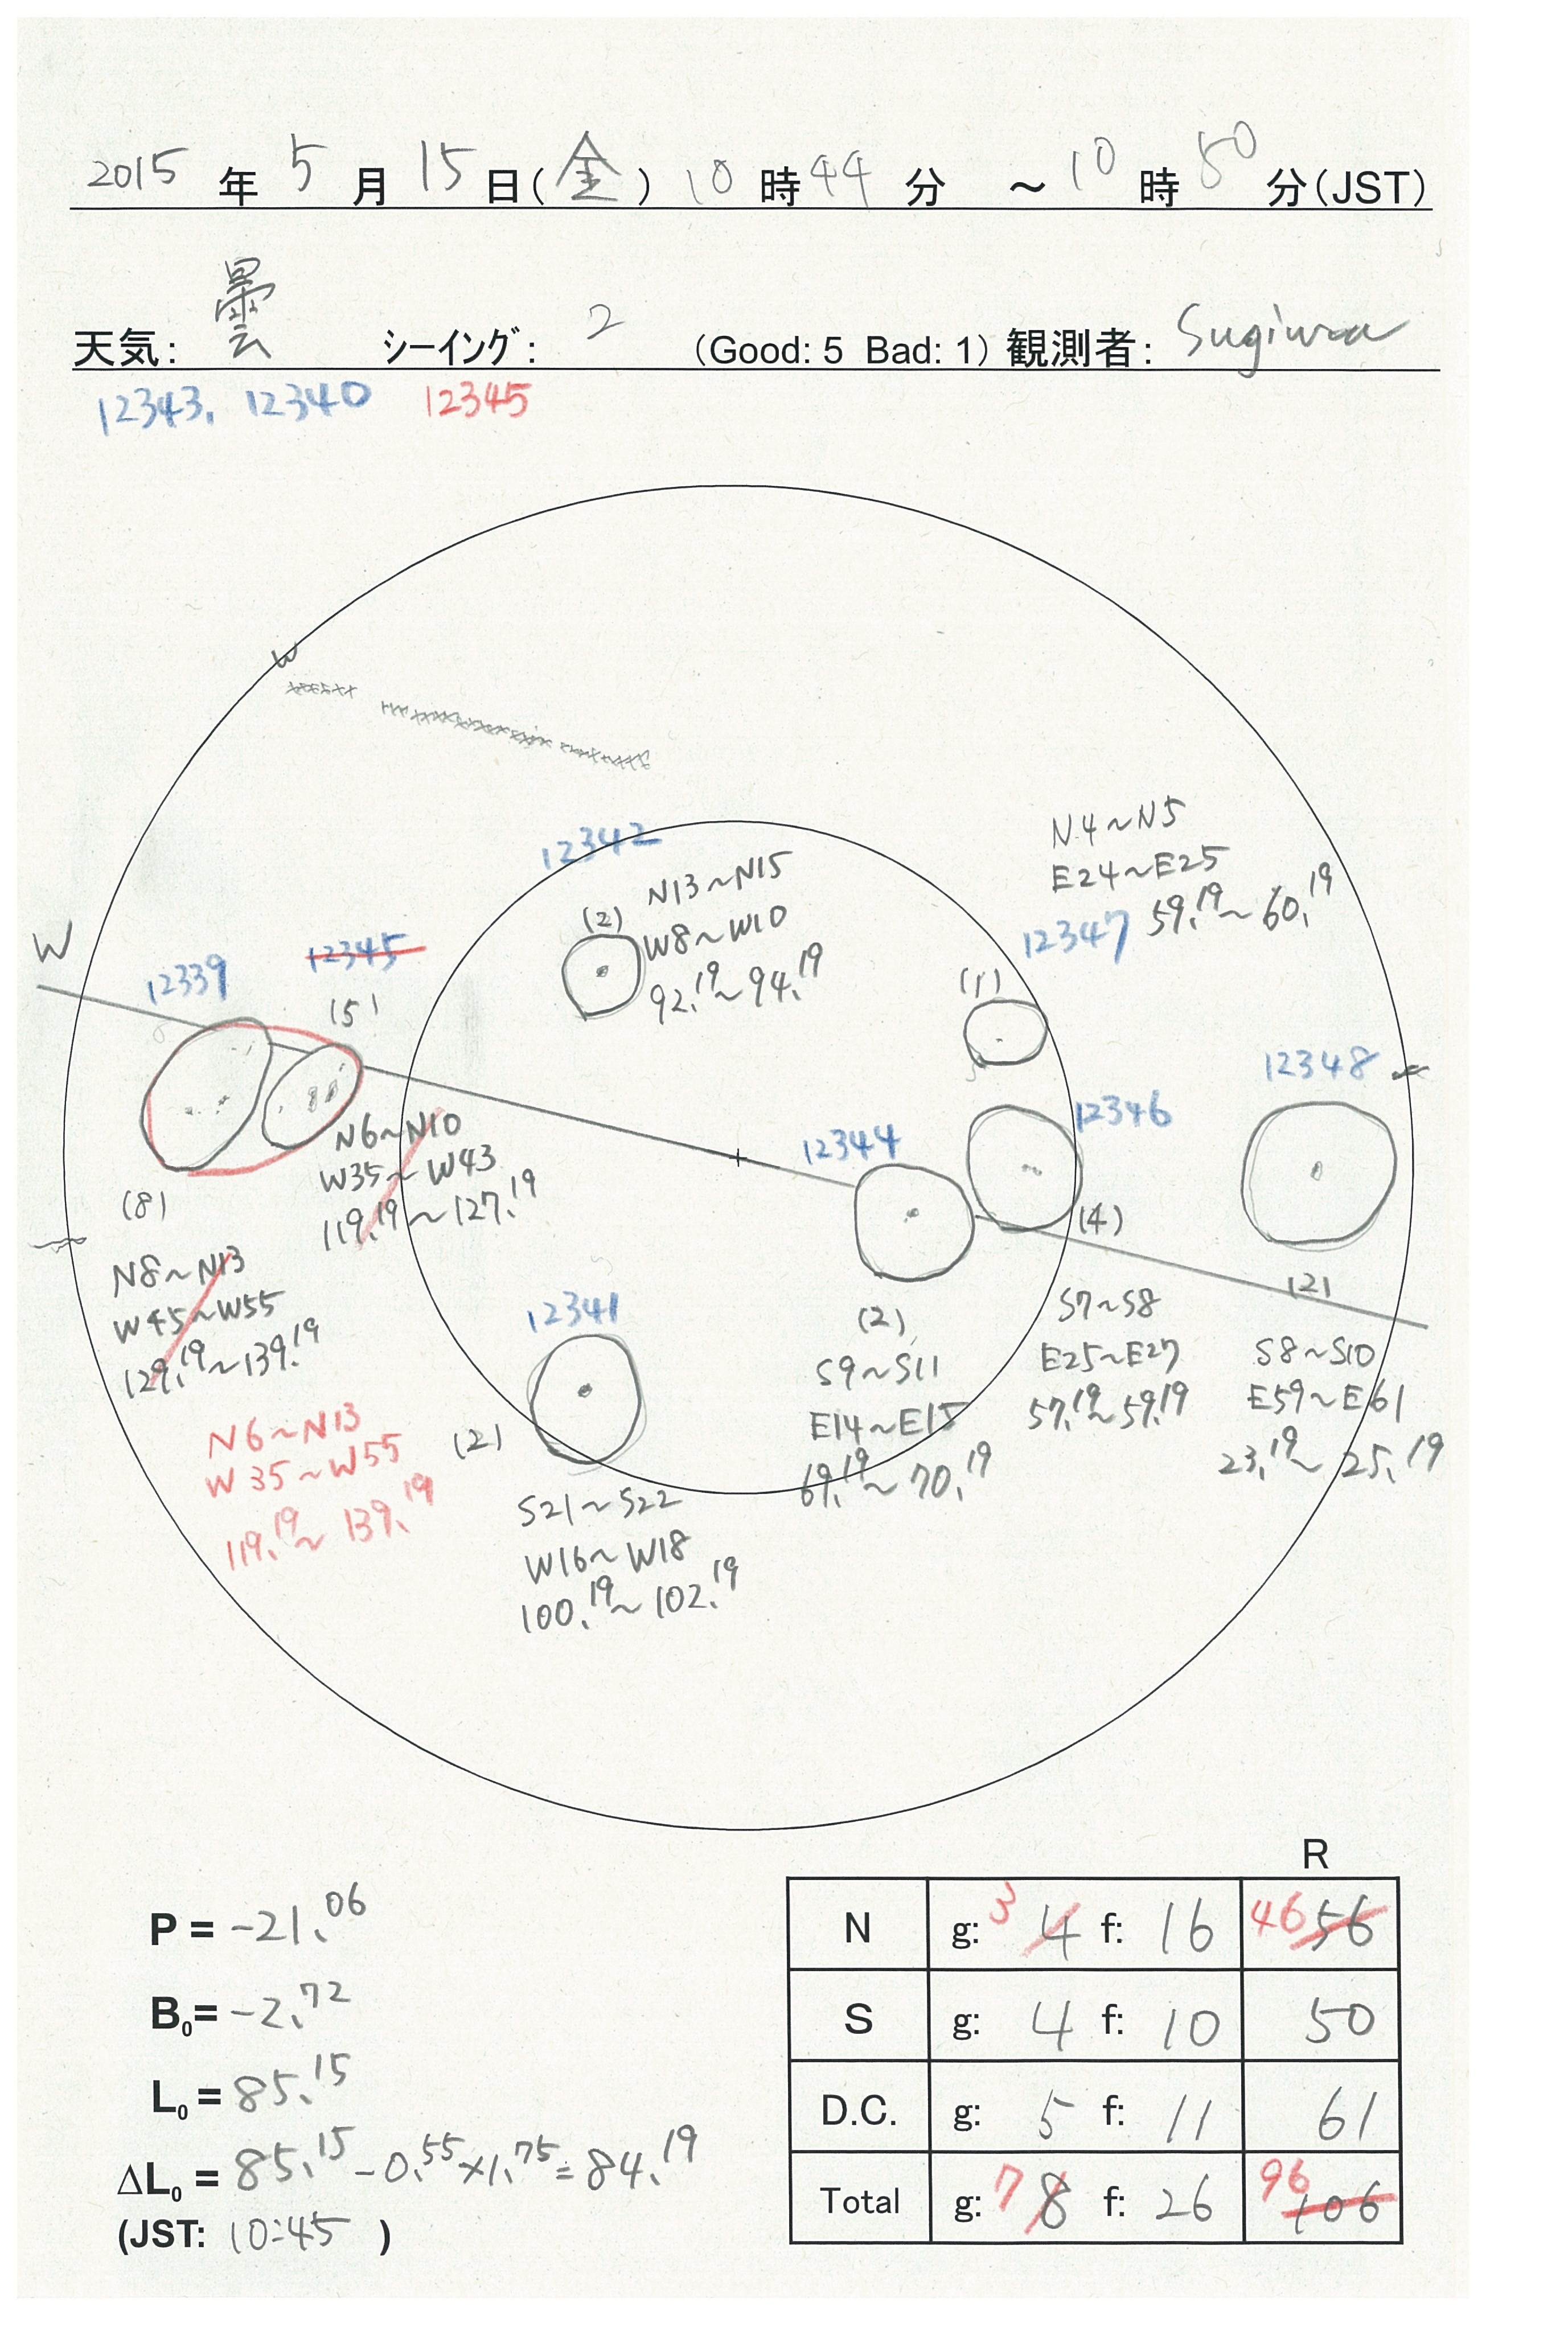 2015年 5月 15日(金) 10時44分 ～10時50分(JST)
天気: 曇 シーイング: 2 (Good: 5 Bad: 1) 観測者: Sugiura
12343, 12340 12345
W
12342
N13～N15
W8～W10
92.19～94.19
(2)
N4～N5
E24～E25
59.19～60.19
12347
(1)
W
12339
12345
(5)
12348
12346
12344
N6～N10
W35～W43
119.19～127.19
(8)
N8～N13
W45～W55
129.19～139.19
N6～N13
W35～W55
119.19～139.19
12341
(2)
S21～S22
W16～W18
100.19～102.19
(2)
S9～S11
E14～E15
69.19～70.19
(4)
S7～S8
E25～E27
57.19～59.19
(2)
S8～S10
E59～E61
23.19～25.19
P = -21.06
B0= -2.72
L0 = 85.15
ΔL0 = 85.15 - 0.55 × 1.75 = 84.19
(JST: 10:45 )
R
N g: 3 4 f: 16 46 56
S g: 4 f: 10 50
D.C. g: 5 f: 11 61
Total g: 7 8 f: 26 96 106